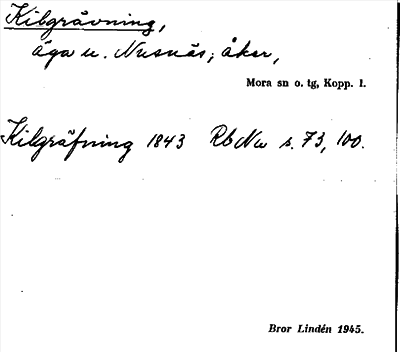 Kilgrävning,
äga u. Nusnäs, åker,
Mora sn o. tg, Kopp. l.
Kilgräfning 1843 RbNu s. 73, 100.
Bror Lindén 1945.